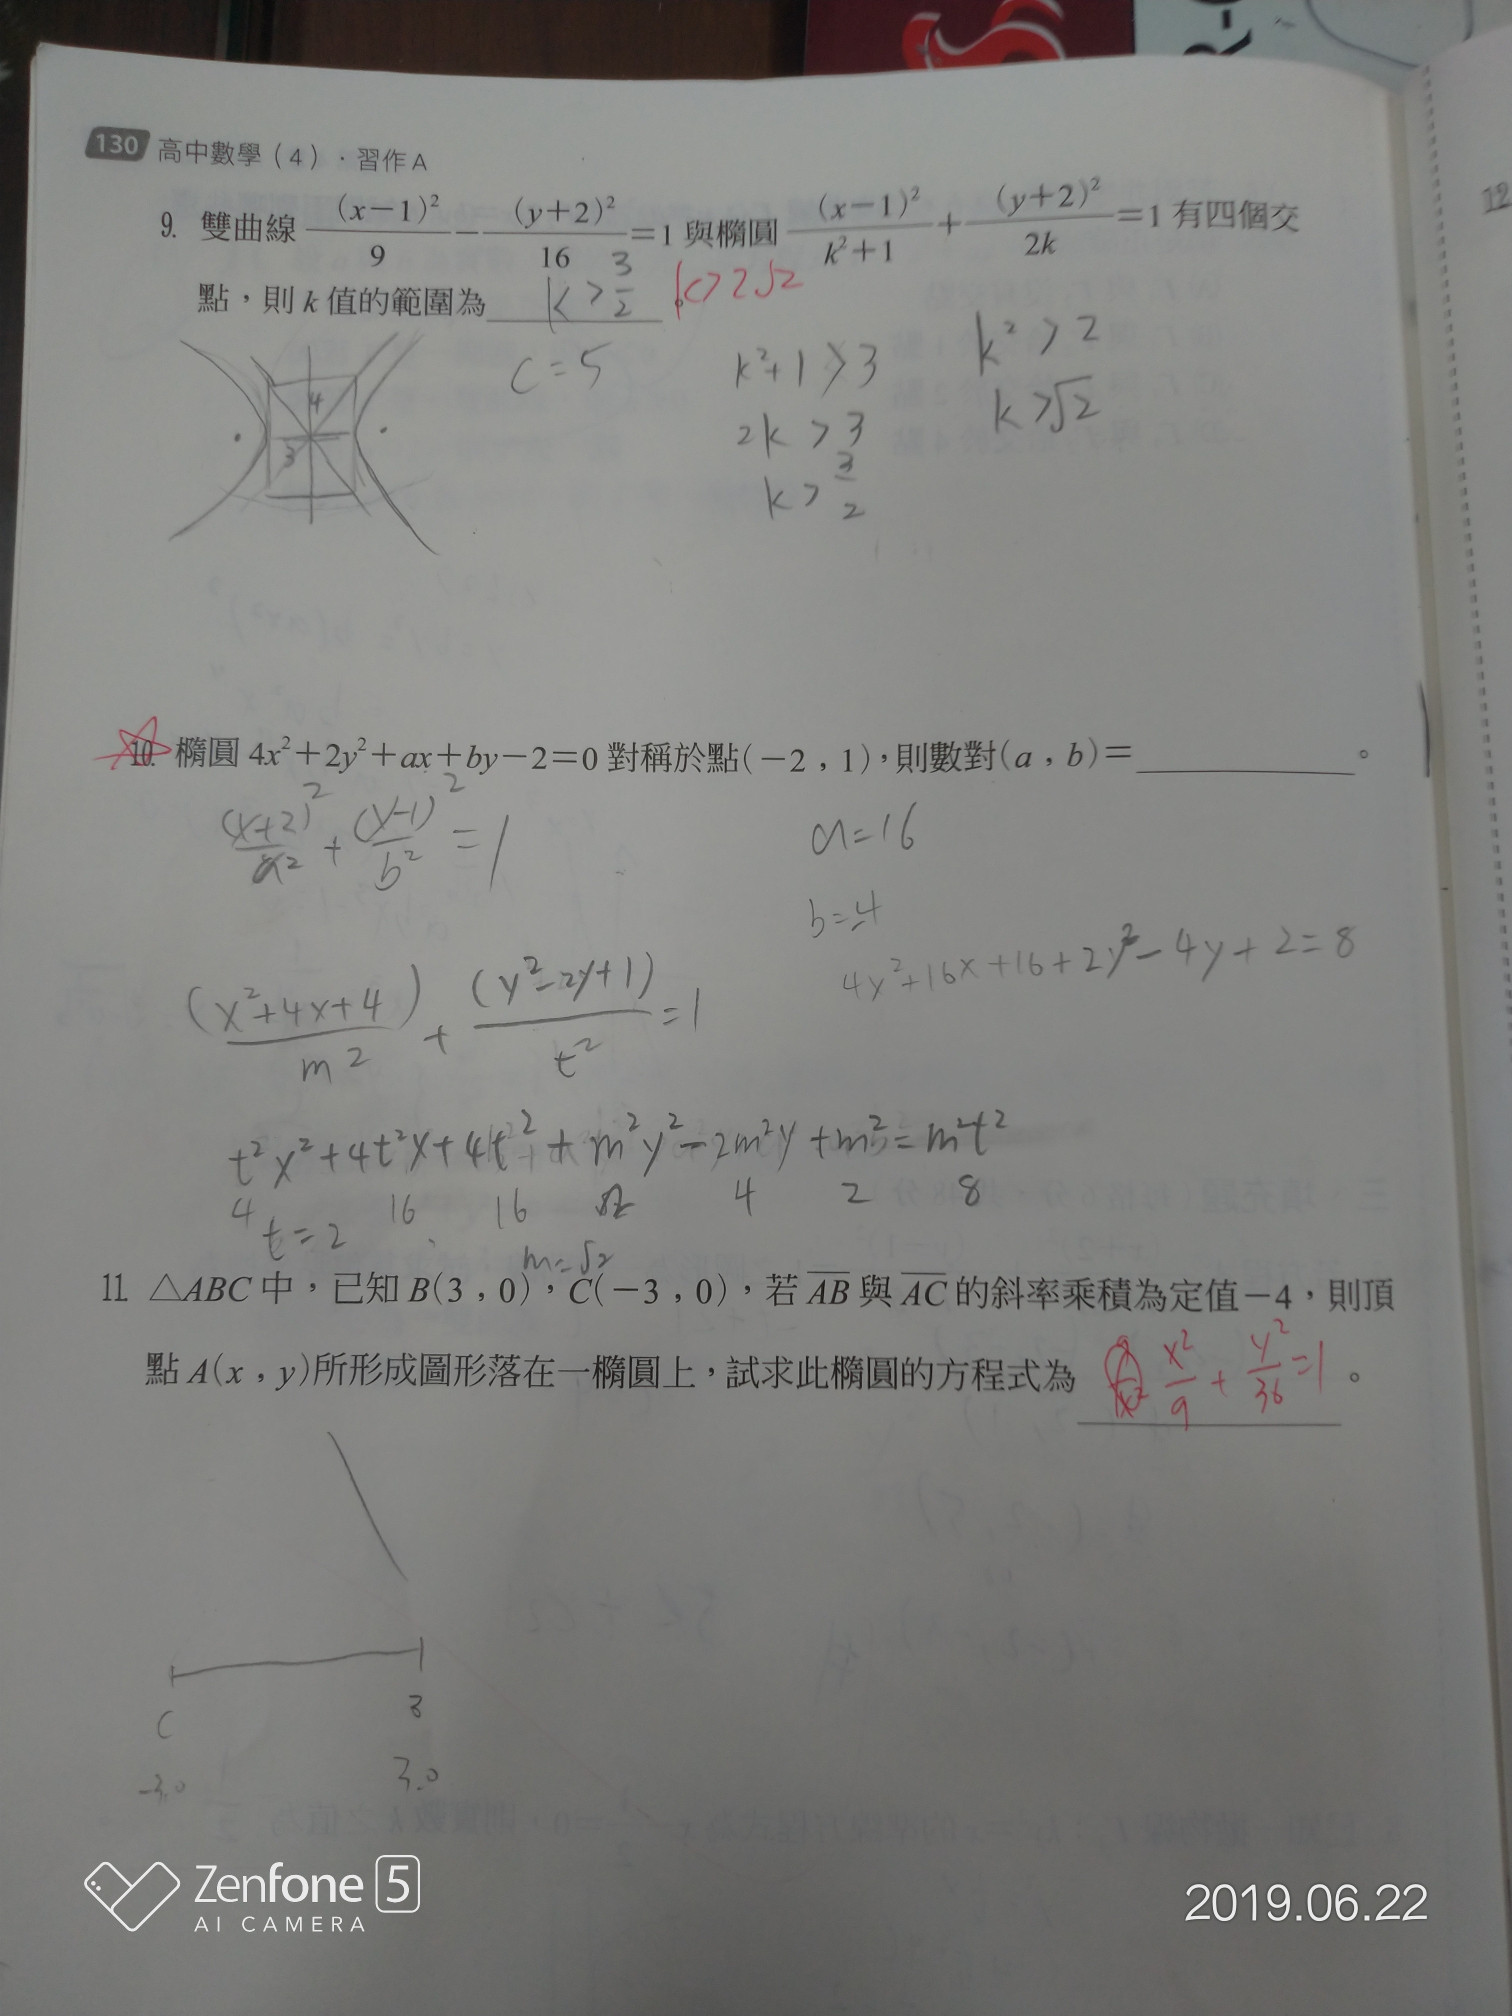 130 高中數學(4)．習作A
9. 雙曲線 (x−1)²/9 − (y+2)²/16 =1 與橢圓 (x−1)²/(k²+1) + (y+2)²/2k =1 有四個交
點，則 k 值的範圍為 k > 3/2 。 k>2√2
4
3
c=5
k²+1>3
2k>3
k>3/2
k²>2
k>√2
10. 橢圓 4x²+2y²+ax+by−2=0 對稱於點(−2，1)，則數對(a，b)= 。
(x+2)²/a² + (y−1)²/b² = 1
a=16
b=-4
(x²+4x+4)/m² + (y²−2y+1)/t² = 1
4y²+16x+16+2y²−4y+2=8
t²x²+4t²x+4t²+m²y²−2m²y+m²=m²t²
4 16 16 2 4 2 8
t=2
m=√2
11. △ABC 中，已知 B(3，0)，C(−3，0)，若 AB 與 AC 的斜率乘積為定值−4，則頂
點 A(x，y)所形成圖形落在一橢圓上，試求此橢圓的方程式為 x²/9 + y²/36 =1 。
C
B
-3.0
3.0
Zenfone 5
AI CAMERA
2019.06.22
12